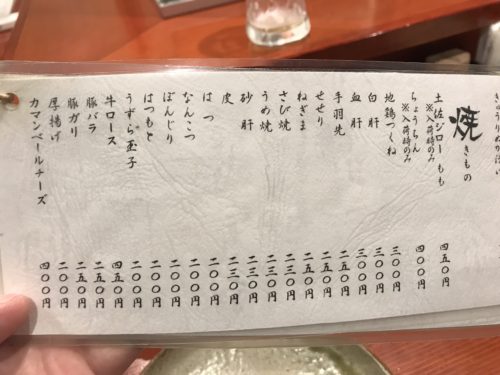 焼きもの
土佐ジロー もも 四五〇円
※入荷時のみ
ちょうちん 四〇〇円
※入荷時のみ
地鶏つくね 三〇〇円
白肝 三〇〇円
血肝 二三〇円
手羽先 二五〇円
せせり 二五〇円
ねぎま 二三〇円
さび焼 二三〇円
うめ焼 二三〇円
砂肝 二三〇円
皮 二三〇円
はつ 二〇〇円
なんこつ 二〇〇円
ぼんじり 二〇〇円
はつもと 二〇〇円
うずら玉子 二〇〇円
牛ロース 四五〇円
豚バラ 二五〇円
豚ガリ 二五〇円
厚揚げ 二〇〇円
カマンベールチーズ 四〇〇円